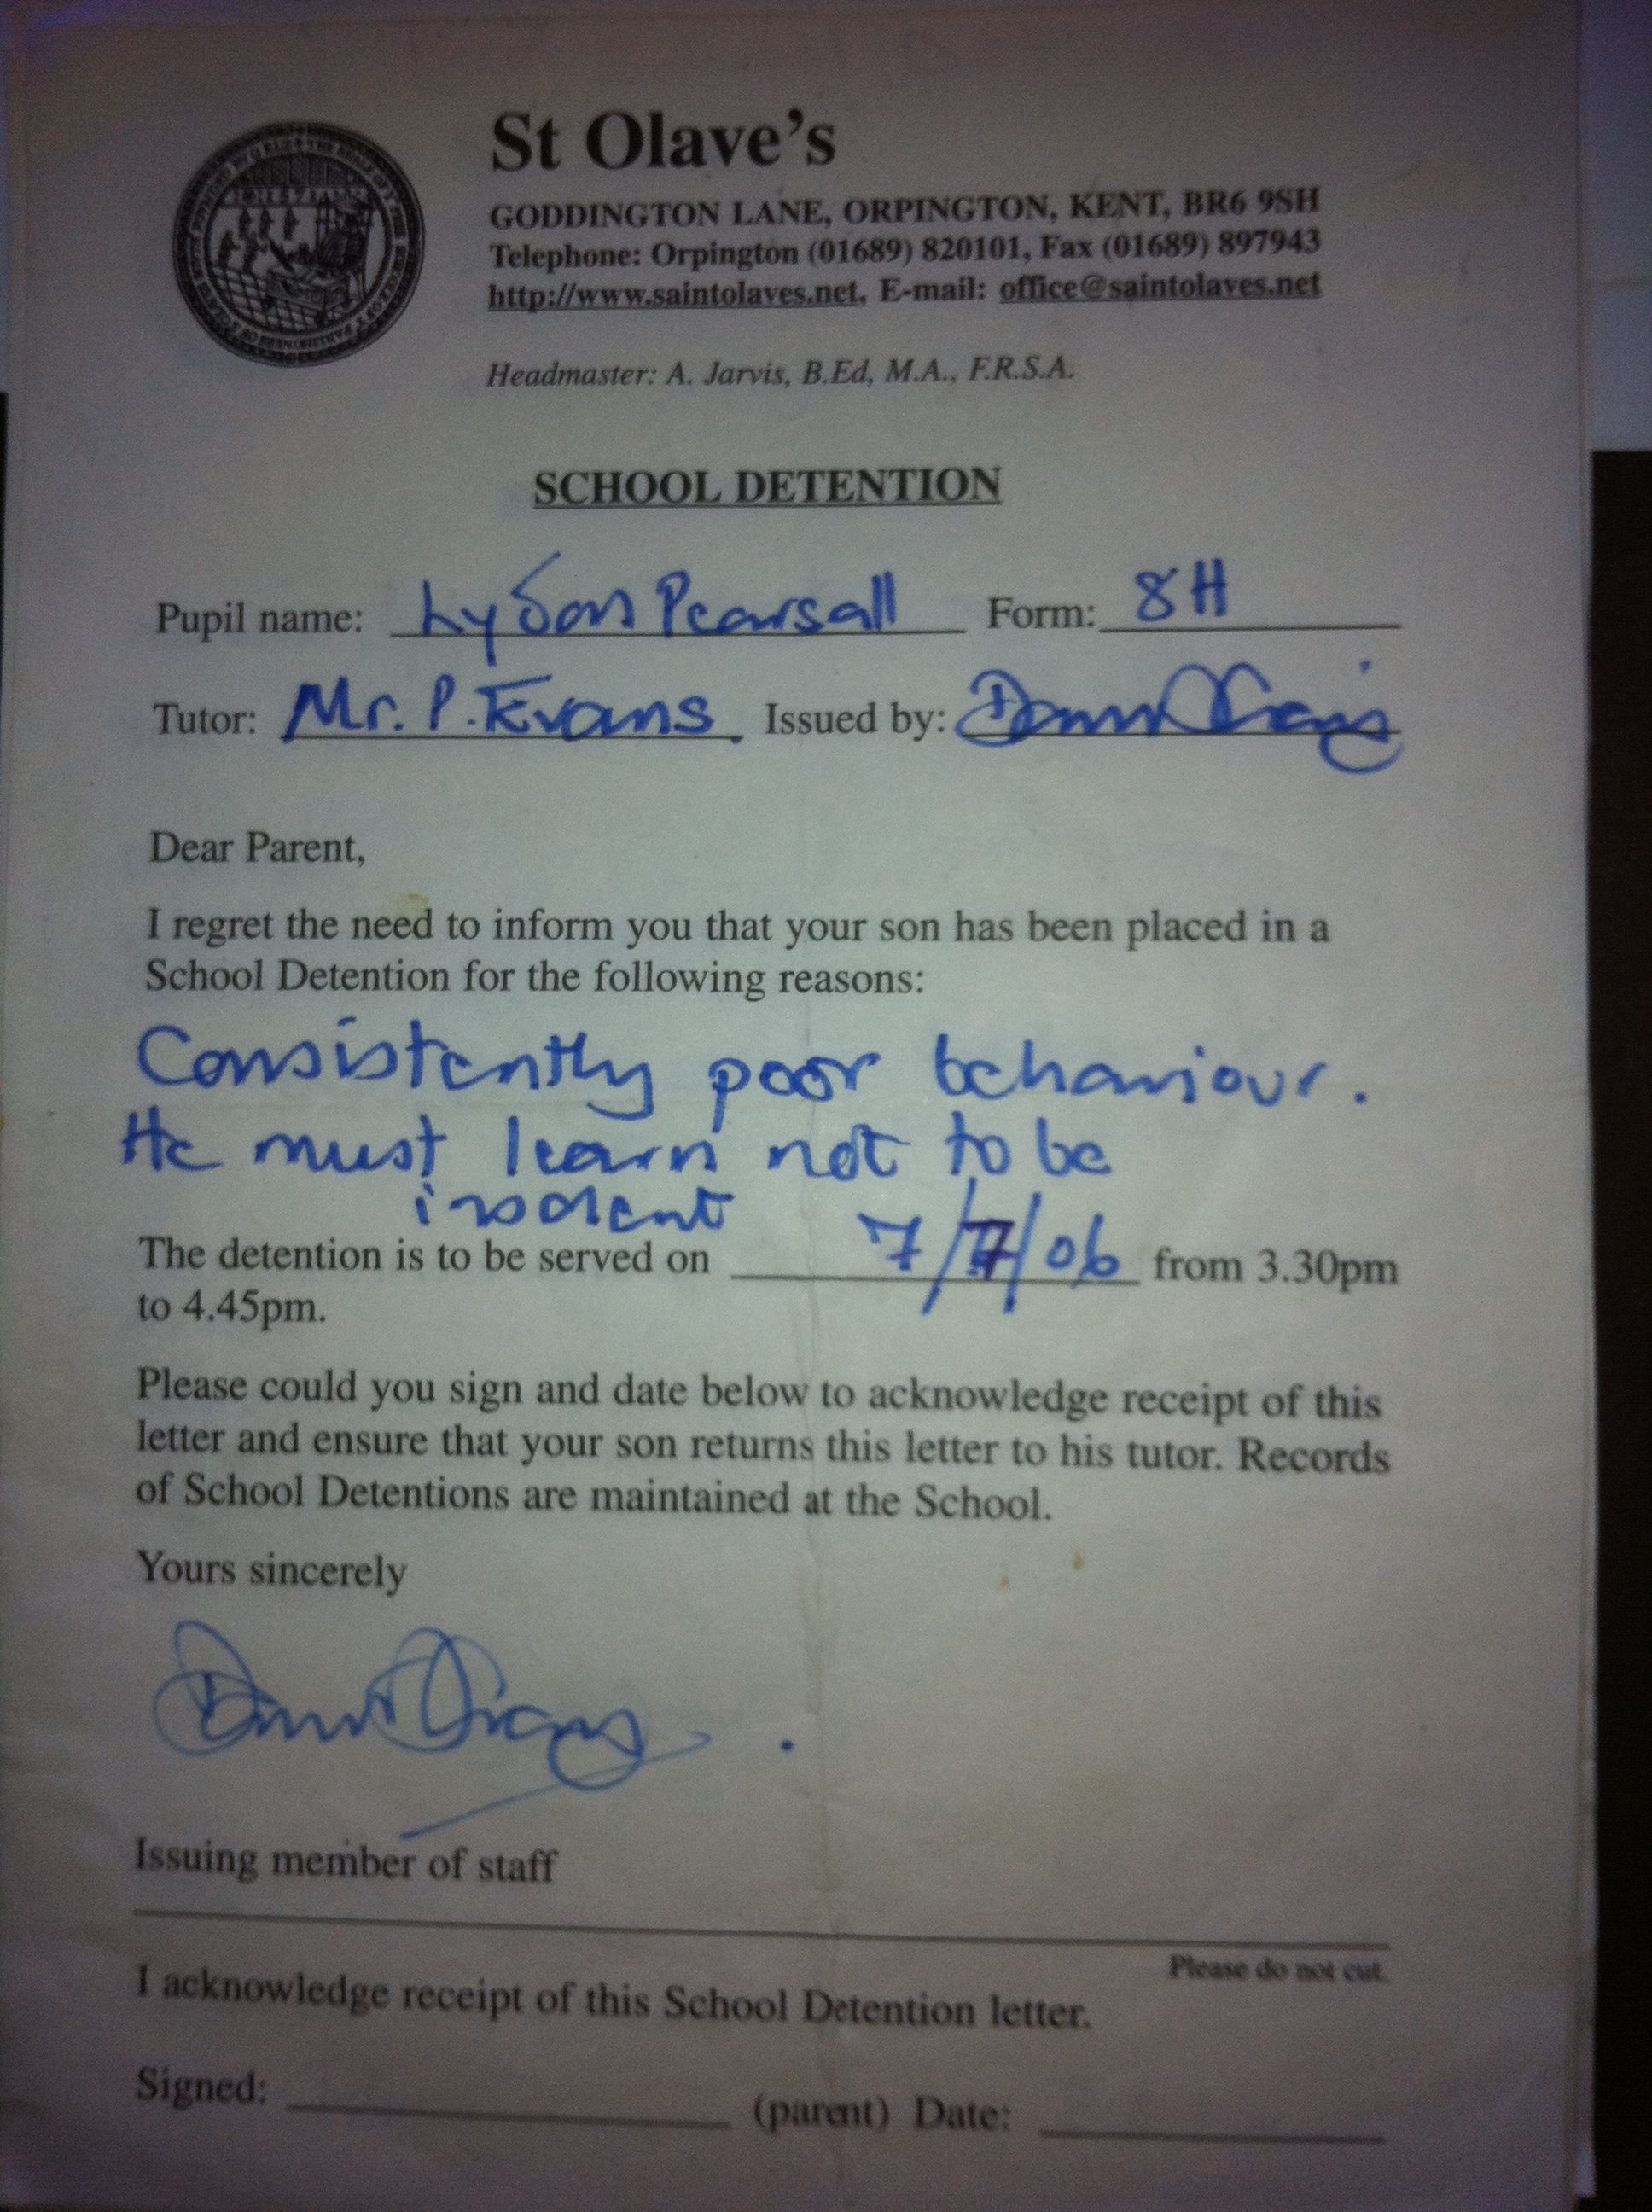 St Olave's
GODDINGTON LANE, ORPINGTON, KENT, BR6 9SH
Telephone: Orpington (01689) 820101, Fax (01689) 897943
http://www.saintolaves.net, E-mail: office@saintolaves.net
Headmaster: A. Jarvis, B.Ed, M.A., F.R.S.A.
SCHOOL DETENTION
Pupil name: Pearsall Form: 8H
Tutor: Mr. P. Evans. Issued by:
Dear Parent,
I regret the need to inform you that your son has been placed in a
School Detention for the following reasons:
Consistently poor behaviour.
He must learn not to be
insolent
The detention is to be served on 7/7/06 from 3.30pm
to 4.45pm.
Please could you sign and date below to acknowledge receipt of this
letter and ensure that your son returns this letter to his tutor. Records
of School Detentions are maintained at the School.
Yours sincerely
Issuing member of staff
Please do not cut.
I acknowledge receipt of this School Detention letter.
Signed: (parent) Date: